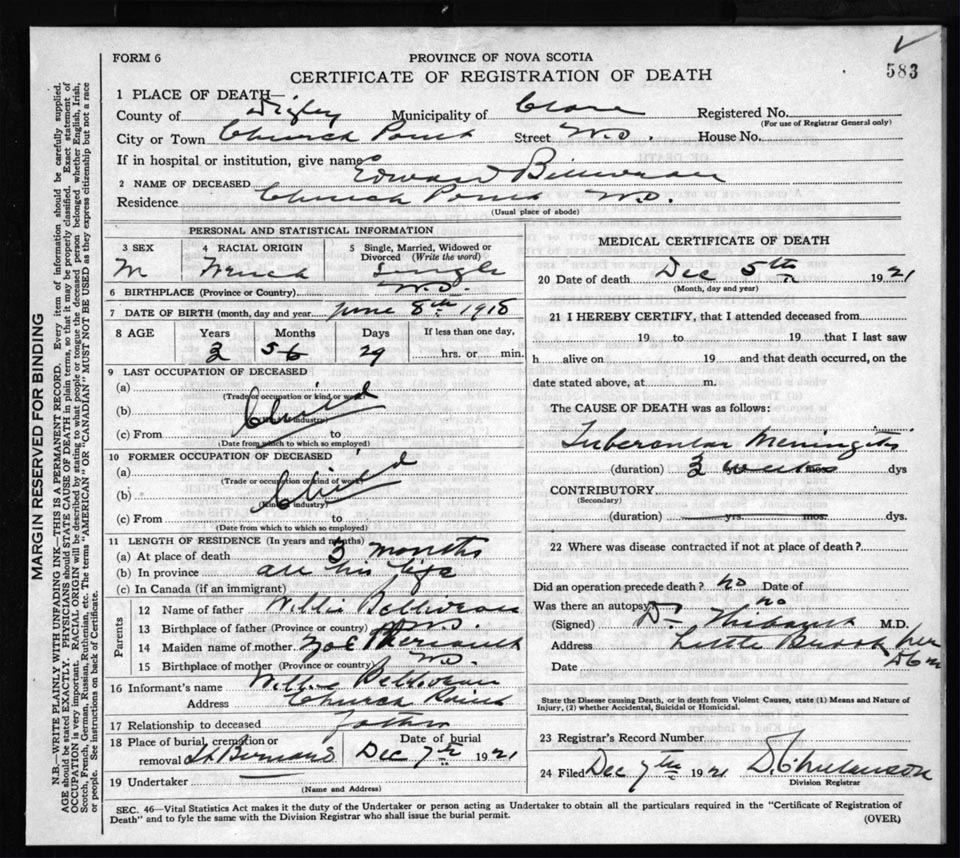 583
FORM 6
PROVINCE OF NOVA SCOTIA
CERTIFICATE OF REGISTRATION OF DEATH
1 PLACE OF DEATH—
County of Digby Municipality of Clare Registered No.
(For use of Registrar General only)
City or Town Church Point Street N.S. House No.
If in hospital or institution, give name
2 NAME OF DECEASED Edward Belliveau
Residence Church Point N.S.
(Usual place of abode)
PERSONAL AND STATISTICAL INFORMATION
3 SEX 4 RACIAL ORIGIN 5 Single, Married, Widowed or Divorced (Write the word)
M French Single
6 BIRTHPLACE (Province or Country) N.S.
7 DATE OF BIRTH (month, day and year) June 8th 1918
8 AGE Years Months Days If less than one day,
3 5 29 hrs. or min.
9 LAST OCCUPATION OF DECEASED
(a)
(Trade or occupation or kind of work)
(b) Child
(Kind of industry)
(c) From to
(Date from which to which so employed)
10 FORMER OCCUPATION OF DECEASED
(a)
(Trade or occupation or kind of work)
(b) Child
(Kind of industry)
(c) From to
(Date from which to which so employed)
11 LENGTH OF RESIDENCE (In years and months)
(a) At place of death 3 months
(b) In province all his life
(c) In Canada (if an immigrant)
Parents
12 Name of father Willie Belliveau
13 Birthplace of father (Province or country) N.S.
14 Maiden name of mother Zoe
15 Birthplace of mother (Province or country) N.S.
16 Informant's name Willie Belliveau
Address Church Point
17 Relationship to deceased father
18 Place of burial, cremation or removal St Bernard Date of burial Dec 7th 1921
19 Undertaker
(Name and Address)
MEDICAL CERTIFICATE OF DEATH
20 Date of death Dec 5th 1921
(Month, day and year)
21 I HEREBY CERTIFY, that I attended deceased from
19 to 19 that I last saw
h alive on 19 and that death occurred, on the
date stated above, at m.
The CAUSE OF DEATH was as follows:
Tubercular Meningitis
(duration) 3 weeks mos dys
CONTRIBUTORY
(Secondary)
(duration) yrs. mos. dys.
22 Where was disease contracted if not at place of death?
Did an operation precede death? no Date of
Was there an autopsy? no
(Signed) Dr Thibault M.D.
Address Little Brook per
Date
State the Disease causing Death, or in death from Violent Causes, state (1) Means and Nature of Injury, (2) whether Accidental, Suicidal or Homicidal.
23 Registrar's Record Number
24 Filed Dec 7th 1921
Division Registrar
SEC. 46—Vital Statistics Act makes it the duty of the Undertaker or person acting as Undertaker to obtain all the particulars required in the "Certificate of Registration of
Death" and to fyle the same with the Division Registrar who shall issue the burial permit. (OVER)
MARGIN RESERVED FOR BINDING
N.B.—WRITE PLAINLY WITH UNFADING INK—THIS IS A PERMANENT RECORD. Every item of information should be carefully supplied.
AGE should be stated EXACTLY. PHYSICIANS should STATE CAUSE OF DEATH in plain terms, so that it may be properly classified. Exact statement of
OCCUPATION is very important. RACIAL ORIGIN will be described by stating to what people or tongue the deceased person belonged whether English, Irish,
Scotch, French, German, Russian, Ruthenian, etc. The terms "AMERICAN" OR "CANADIAN" MUST NOT BE USED as they express citizenship but not a race
or people. See instructions on back of Certificate.